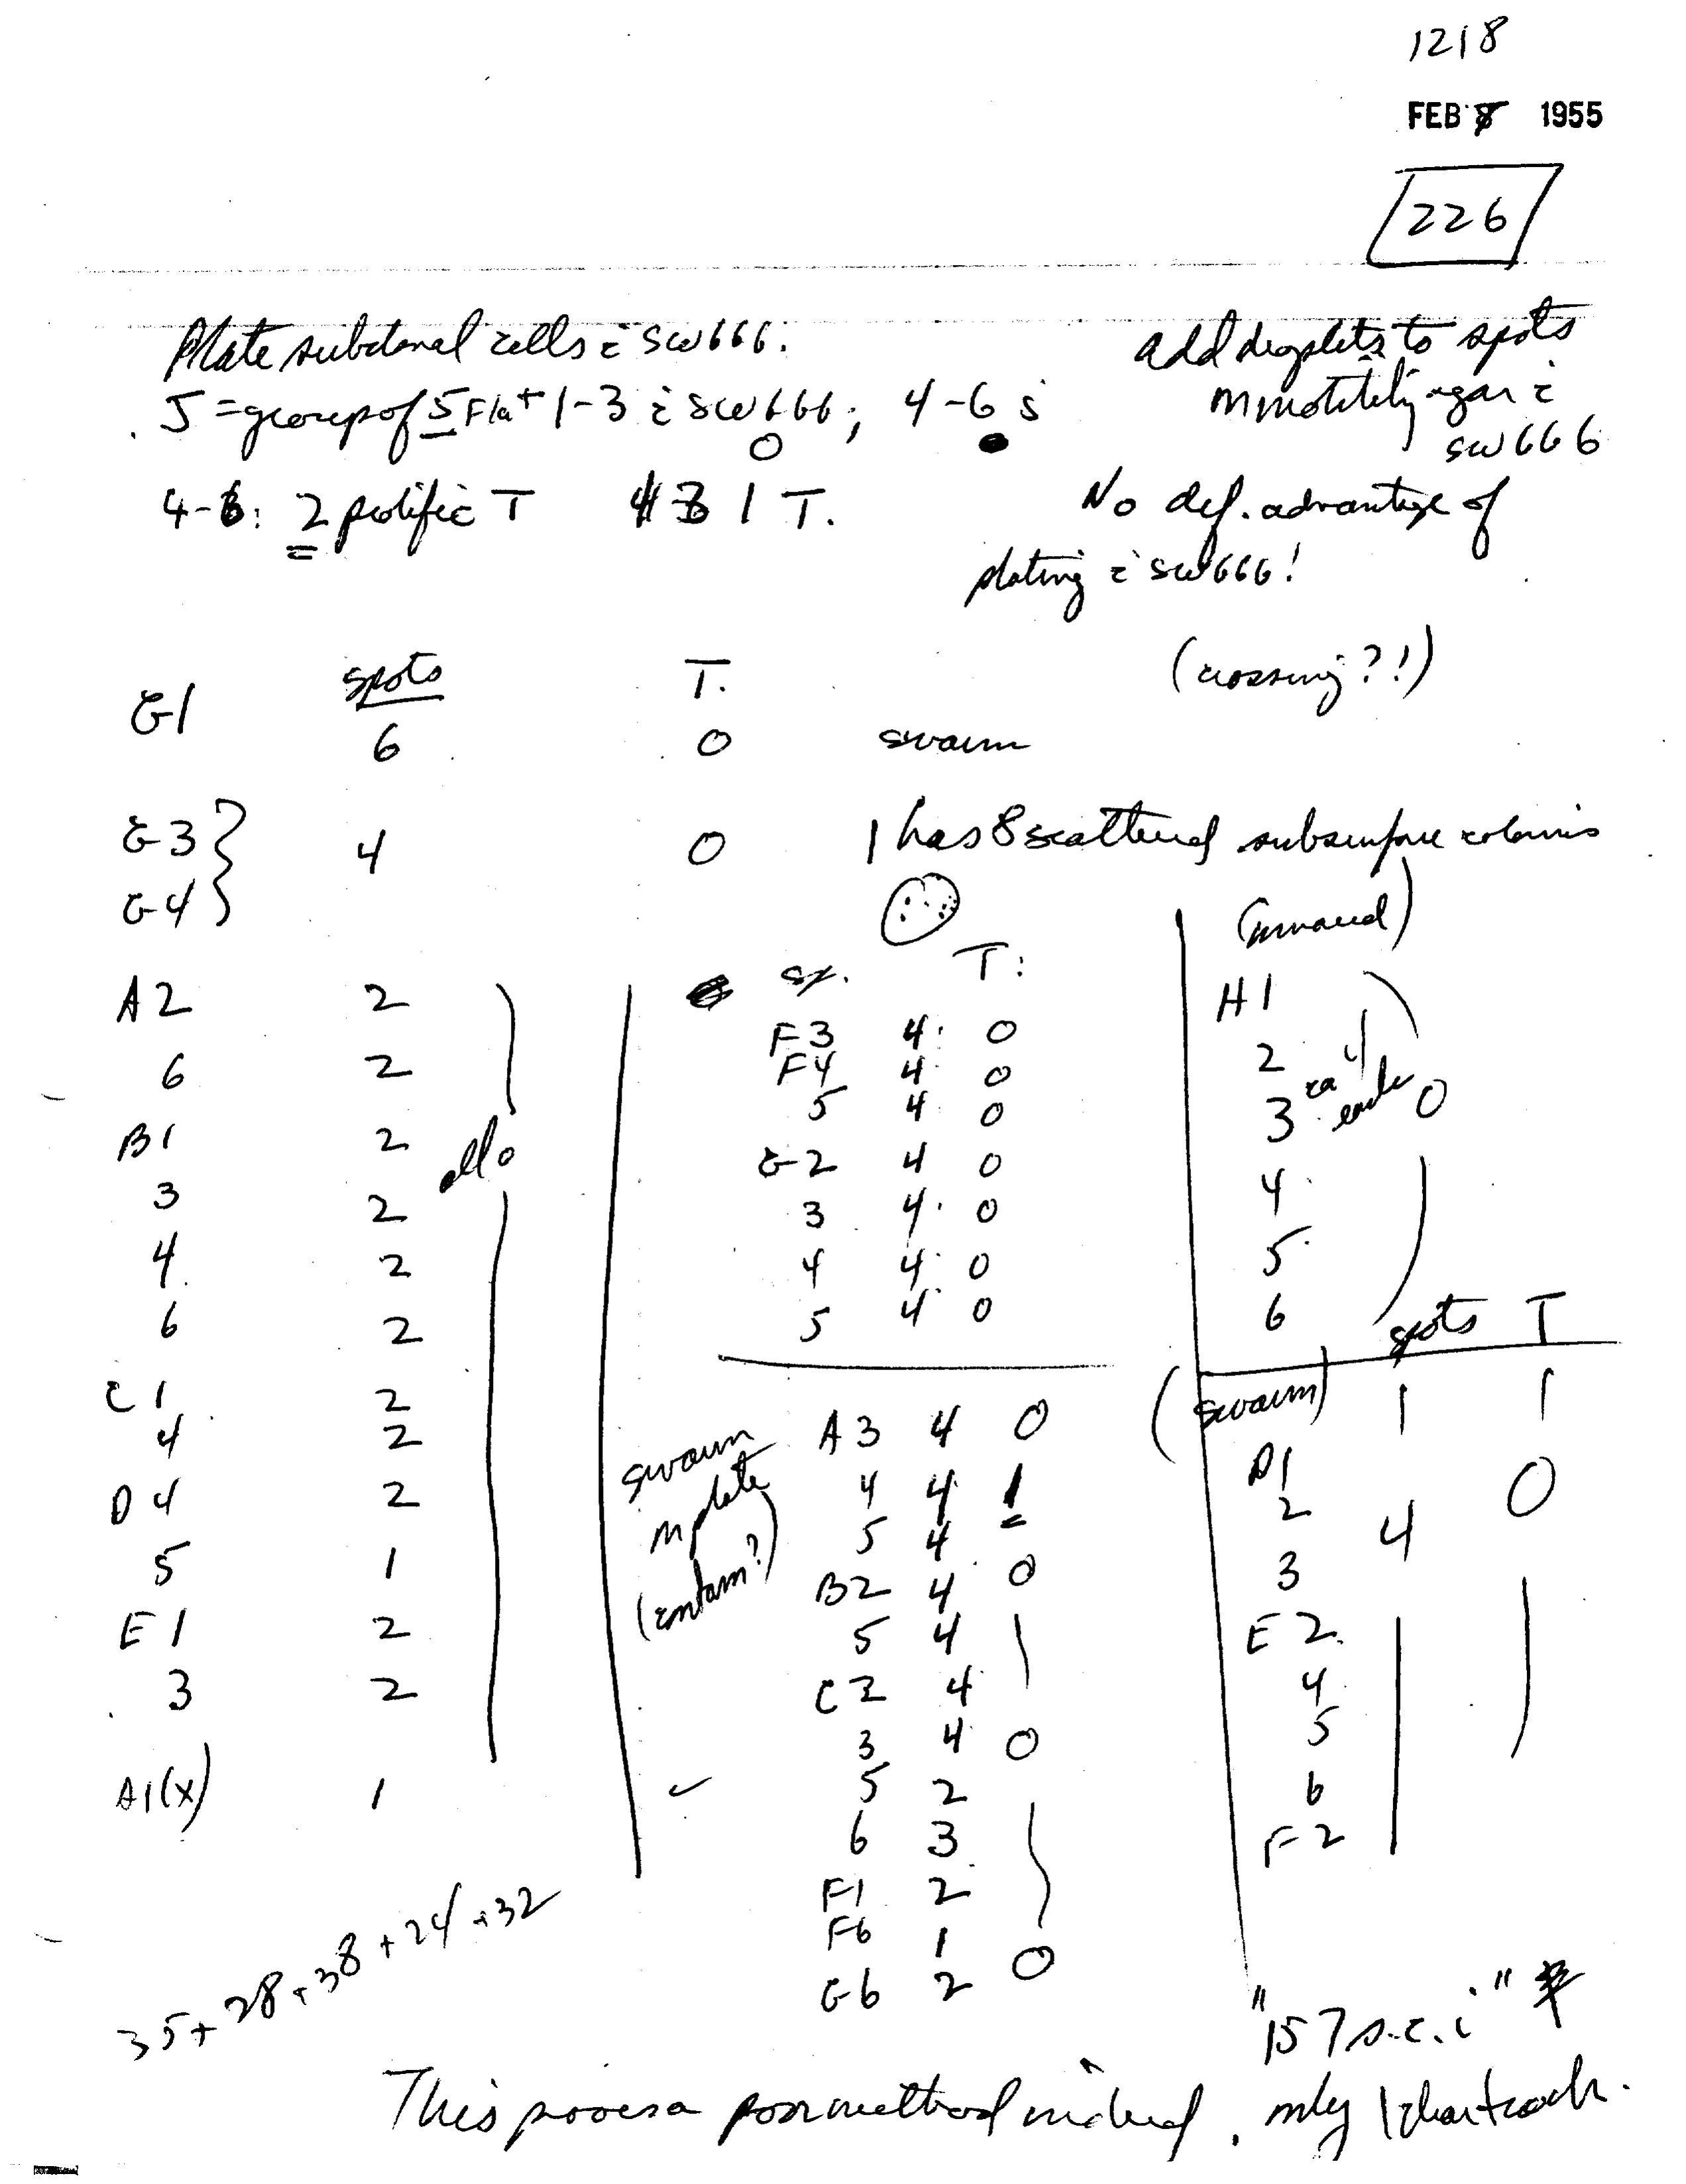 1218
FEB 8 1955
226
Plate subclonal cells c̄ SW666.
J = group of 5 Fla+ 1-3 c̄ SW666; 4-6 s̄
O
4-6: 2 prolific T # 3 1 T.
add droplets to spots
in motility agar c̄
SW666
No def. advantage of
plating c̄ SW666!
(crossing?!)
spots T.
G1 6 0 swarm
G3 } 4 0 1 has 8 scattered subsurface colonies
G4 }
A2 2
6 2
B1 2
3 2
4 2
6 2
C1 2
4 2
D4 2
5 1
E1 2
3 2
all 0
A1(x) 1
sp. T:
F3 4 0
F4 4 0
5 4 0
G2 4 0
3 4 0
4 4 0
5 4 0
swarm
in plate
(contam?)
A3 4 0
4 4 1
5 4
B2 4 0
5 4
C2 4
3 4 0
✓ 5 2
6 3
F1 2
F6 1
G6 2 0
H1
2
3
4
5
6
ca 4
each 0
spots T
(swarm) 1 1
D1
2 4 0
3
E2
4
5
6
F2
35+28+38+24+32
"157 s.c.i"
This proves a poor method indeed, only 1 clear track.